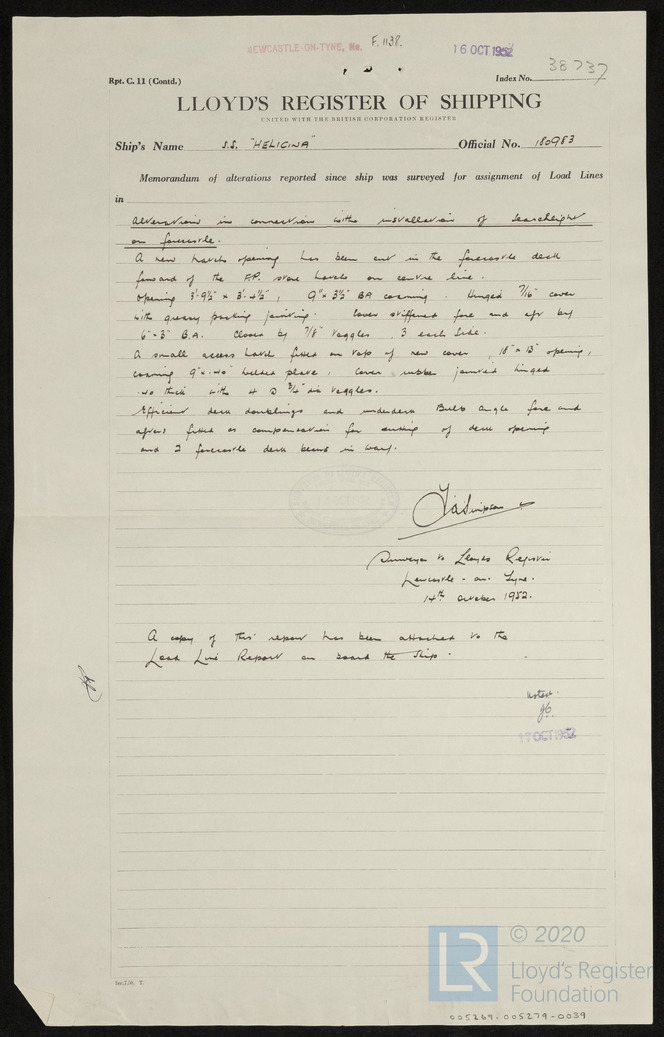 NEWCASTLE-ON-TYNE, No. F. 1138.
16 OCT 1952
Rpt. C. 11 (Contd.)
Index No. 38737
LLOYD'S REGISTER OF SHIPPING
UNITED WITH THE BRITISH CORPORATION REGISTER
Ship's Name S.S. "HELICINA" Official No. 180983
Memorandum of alterations reported since ship was surveyed for assignment of Load Lines
in
Alterations in connection with installation of Searchlight
on forecastle.
A new hatch opening has been cut in the forecastle deck
forward of the F.P. store hatch on centre line.
Opening 3'-9½" x 3'-4½", 9" x 3½" BA coaming. Hinged 7/16" cover
with greasy packing jointing. Cover stiffened fore and aft by
6" x 3" B.A. Closed by 7/8" toggles, 3 each side.
A small access hatch fitted on top of new cover, 18" x 15" opening,
coaming 9" x .40" welded plate, cover rubber jointed hinged
.40 thick with 4 @ ¾" dia toggles.
Efficient deck doublings and underdeck Bulb Angle fore and
afters fitted as compensation for cutting of deck opening
and 2 forecastle deck beams in way.
Simpson
Surveyor to Lloyds Register
Newcastle-on-Tyne.
14th October 1952.
A copy of this report has been attached to the
Load Line Report on board the Ship.
Noted.
17 OCT 1952
© 2020
LR
Lloyd's Register
Foundation
005269-005279-0039